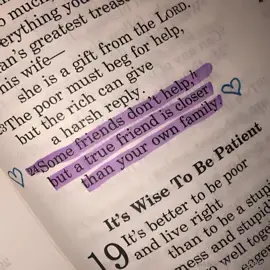 erything you
an's greatest treas
his wife—
she is a gift from the LORD.
23The poor must beg for help,
but the rich can give
a harsh reply.
24Some friends don't help,
but a true friend is closer
than your own family.
It's Wise To Be Patient
19 It's better to be poor
and live right
than to be a stup
ness and stupid
well toge